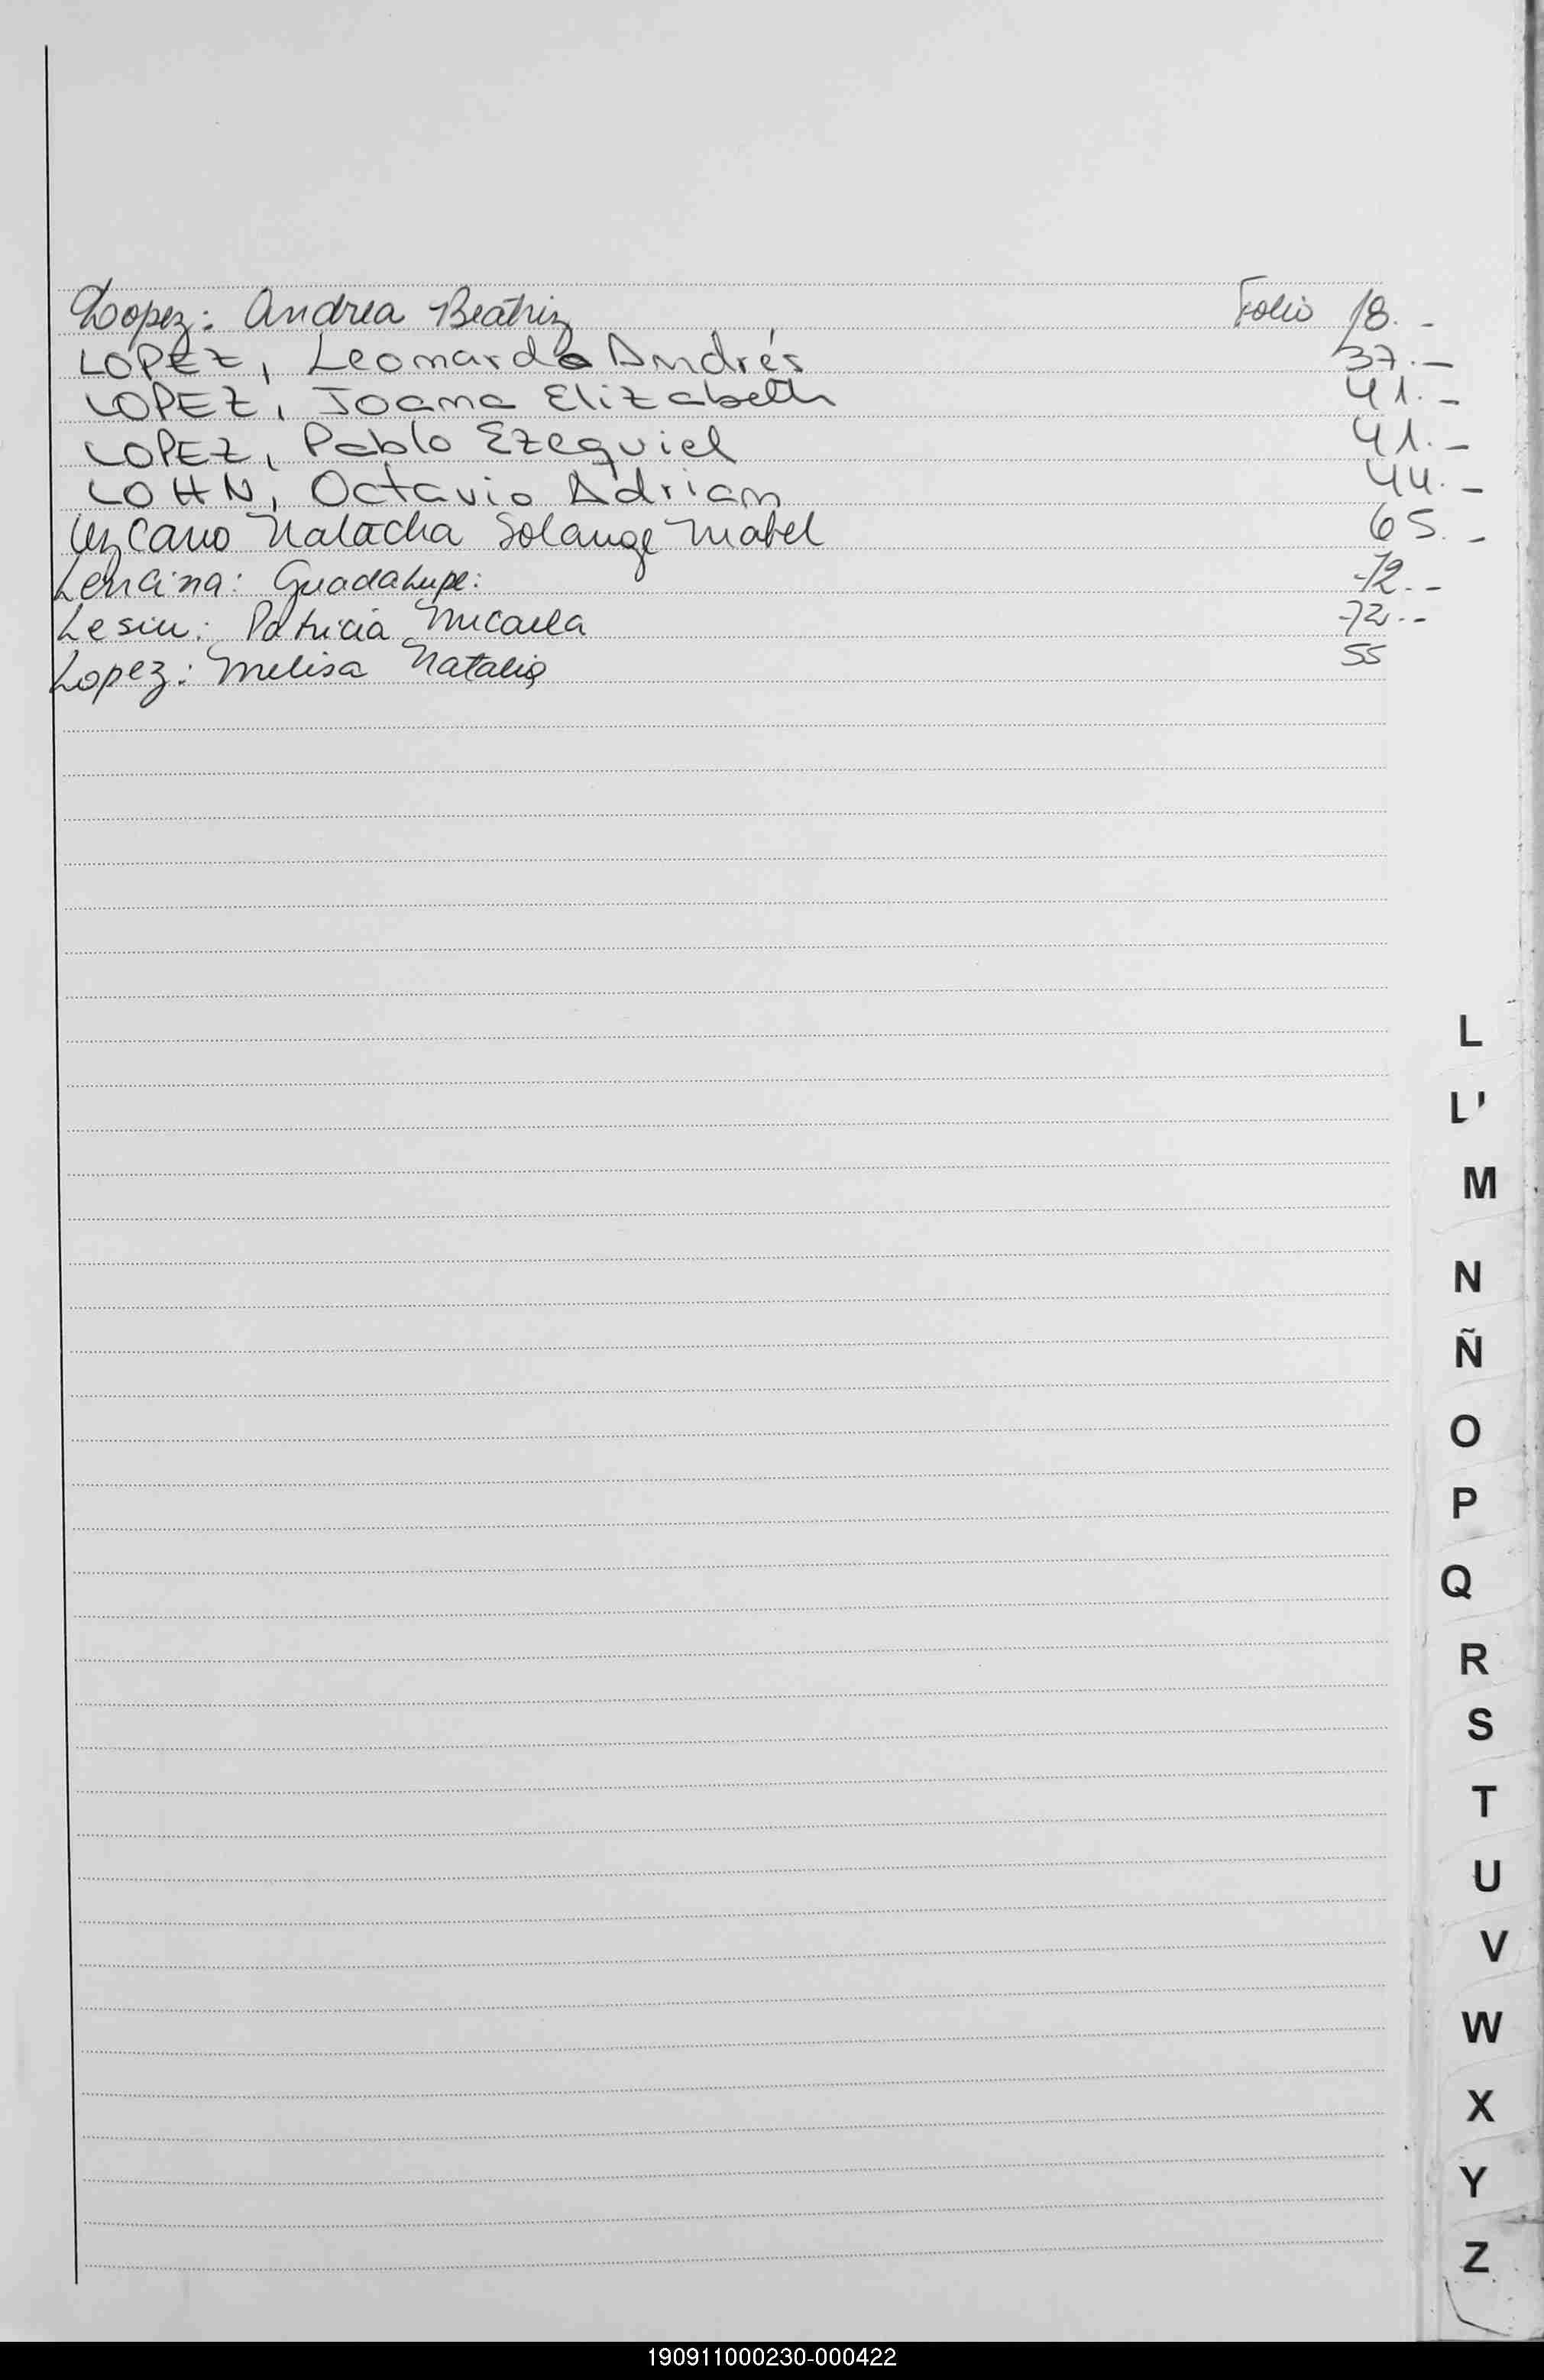 Lopez: Andrea Beatriz Folio 18.-
LOPEZ, Leonardo Andrés 37.-
LOPEZ, Joana Elizabeth 41.-
LOPEZ, Pablo Ezequiel 41.-
LOHN, Octavio Adrian 44.-
Lezcano Natacha Solange Mabel 65.-
Lencina: Guadalupe: 72.--
Lesiu: Patricia Micaela 72.--
Lopez: Melisa Natalia 55
L
L'
M
N
Ñ
O
P
Q
R
S
T
U
V
W
X
Y
Z
190911000230-000422